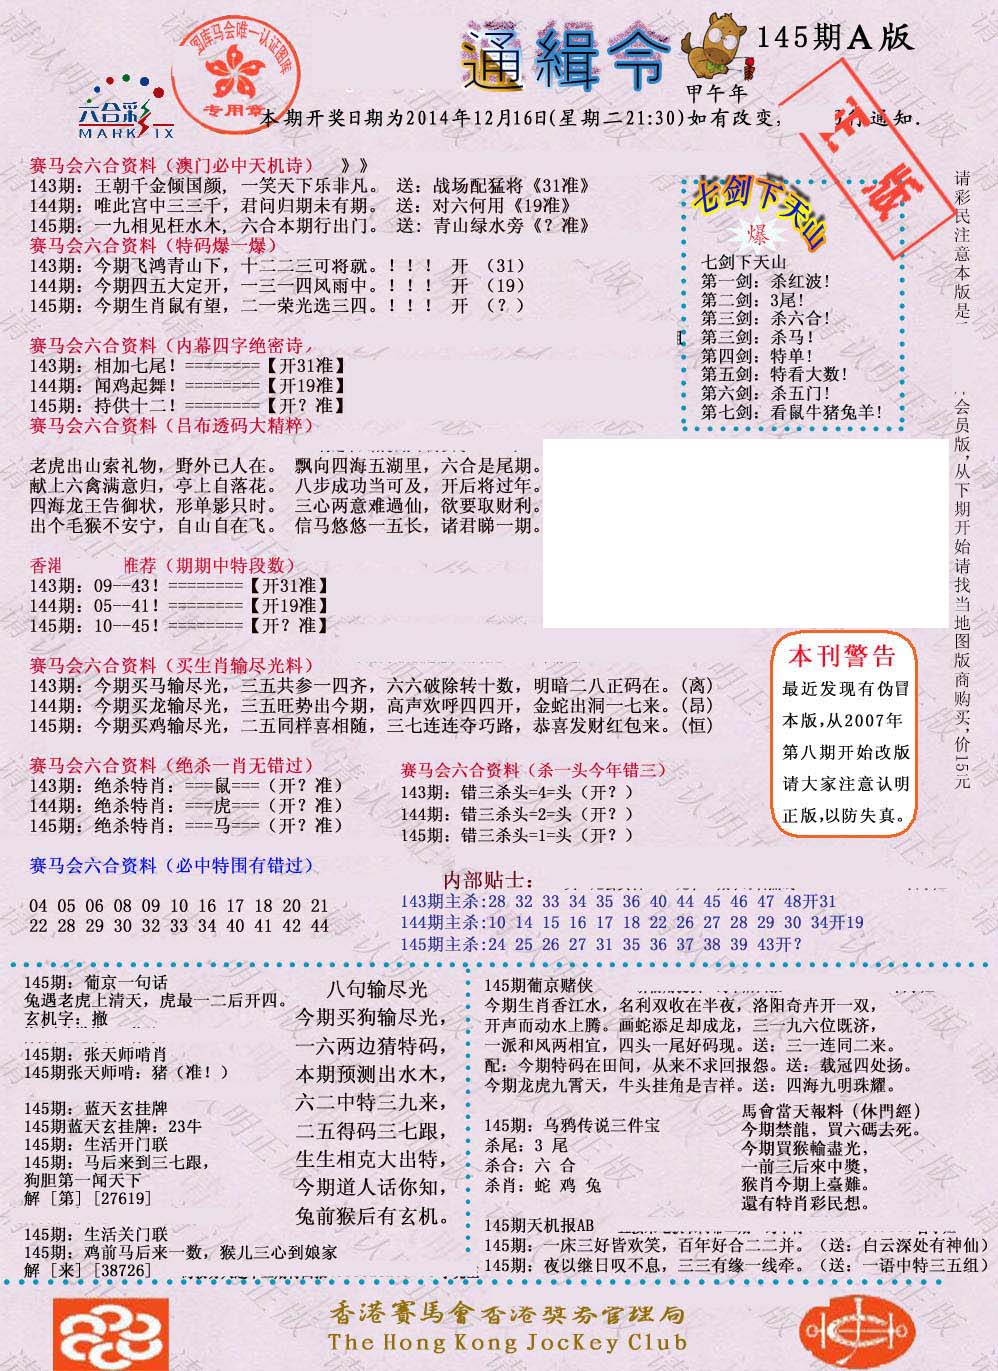 通緝令
145期A版
甲午年
图库马会唯一认证图库
专用章
六合彩
MARK SIX
本期开奖日期为2014年12月16日(星期二21:30)如有改变,
通知.
赛马会六合资料（澳门必中天机诗） 》》
143期: 王朝千金倾国颜, 一笑天下乐非凡。 送: 战场配猛将《31准》
144期: 唯此宫中三三千, 君问归期未有期。 送: 对六何用《19准》
145期: 一九相见枉水木, 六合本期行出门。 送: 青山绿水旁《? 准》
赛马会六合资料（特码爆一爆）
143期: 今期飞鸿青山下, 十二二三可将就。! ! ! 开 （31）
144期: 今期四五大定开, 一三一四风雨中。! ! ! 开 （19）
145期: 今期生肖鼠有望, 二一荣光选三四。! ! ! 开 （? ）
赛马会六合资料（内幕四字绝密诗
143期: 相加七尾! ========【开31准】
144期: 闻鸡起舞! ========【开19准】
145期: 持供十二! ========【开? 准】
赛马会六合资料（吕布透码大精粹）
老虎出山索礼物, 野外已人在。 飘向四海五湖里, 六合是尾期。
献上六禽满意归, 亭上自落花。 八步成功当可及, 开后将过年。
四海龙王告御状, 形单影只时。 三心两意难過仙, 欲要取财利。
出个毛猴不安宁, 自山自在飞。 信马悠悠一五长, 诸君睇一期。
七剑下天山
爆
七剑下天山
第一剑: 杀红波!
第二剑: 3尾!
第三剑: 杀六合!
第三剑: 杀马!
第四剑: 特单!
第五剑: 特看大数!
第六剑: 杀五门!
第七剑: 看鼠牛猪兔羊!
请彩民注意本版是
会员版,从下期开始请找当地图版商购买,价15元
香港 推荐（期期中特段数）
143期: 09--43! ========【开31准】
144期: 05--41! ========【开19准】
145期: 10--45! ========【开? 准】
赛马会六合资料（买生肖输尽光料）
143期: 今期买马输尽光, 三五共参一四齐, 六六破除转十数, 明暗二八正码在。(离)
144期: 今期买龙输尽光, 三五旺势出今期, 高声欢呼四四开, 金蛇出洞一七来。(昂)
145期: 今期买鸡输尽光, 二五同样喜相随, 三七连连夺巧路, 恭喜发财红包来。(恒)
本刊警告
最近发现有伪冒
本版,从2007年
第八期开始改版
请大家注意认明
正版,以防失真。
赛马会六合资料（绝杀一肖无错过）
143期: 绝杀特肖: ===鼠===（开? 准）
144期: 绝杀特肖: ===虎===（开? 准）
145期: 绝杀特肖: ===马===（开? 准）
赛马会六合资料（杀一头今年错三）
143期: 错三杀头=4=头（开? ）
144期: 错三杀头=2=头（开? ）
145期: 错三杀头=1=头（开? ）
赛马会六合资料（必中特围有错过）
04 05 06 08 09 10 16 17 18 20 21
22 28 29 30 32 33 34 40 41 42 44
内部贴士:
143期主杀:28 32 33 34 35 36 40 44 45 46 47 48开31
144期主杀:10 14 15 16 17 18 22 26 27 28 29 30 34开19
145期主杀:24 25 26 27 31 35 36 37 38 39 43开?
145期: 葡京一句话
兔遇老虎上清天, 虎最一二后开四。
玄机字: 撤
145期: 张天师啃肖
145期张天师啃: 猪（准! ）
145期: 蓝天玄挂牌
145期蓝天玄挂牌: 23牛
145期: 生活开门联
145期: 马后来到三七跟,
狗胆第一闻天下
解 [第] [27619]
145期: 生活关门联
145期: 鸡前马后来一数, 猴儿三心到娘家
解 [来] [38726]
八句输尽光
今期买狗输尽光,
一六两边猜特码,
本期预测出水木,
六二中特三九来,
二五得码三七跟,
生生相克大出特,
今期道人话你知,
兔前猴后有玄机。
145期葡京赌侠
今期生肖香江水, 名利双收在半夜, 洛阳奇卉开一双,
开声而动水上腾。画蛇添足却成龙, 三一九六位既济,
一派和风两相宜, 四头一尾好码现。送: 三一连同二来。
配: 今期特码在田间, 从来不求回报怨。送: 载冠四处扬。
今期龙虎九霄天, 牛头挂角是吉祥。送: 四海九明珠耀。
145期: 乌鸦传说三件宝
杀尾: 3 尾
杀合: 六 合
杀肖: 蛇 鸡 兔
馬會當天報料 (休門經)
今期禁龍, 買六碼去死。
今期買猴輸盡光,
一前三后來中獎,
猴肖今期上臺難。
還有特肖彩民想。
145期天机报AB
145期: 一床三好皆欢笑, 百年好合二二并。（送: 白云深处有神仙)
145期: 夜以继日叹不息, 三三有缘一线牵。（送: 一语中特三五组)
香港賽馬會香港獎券管理局
The Hong Kong JocKey Club